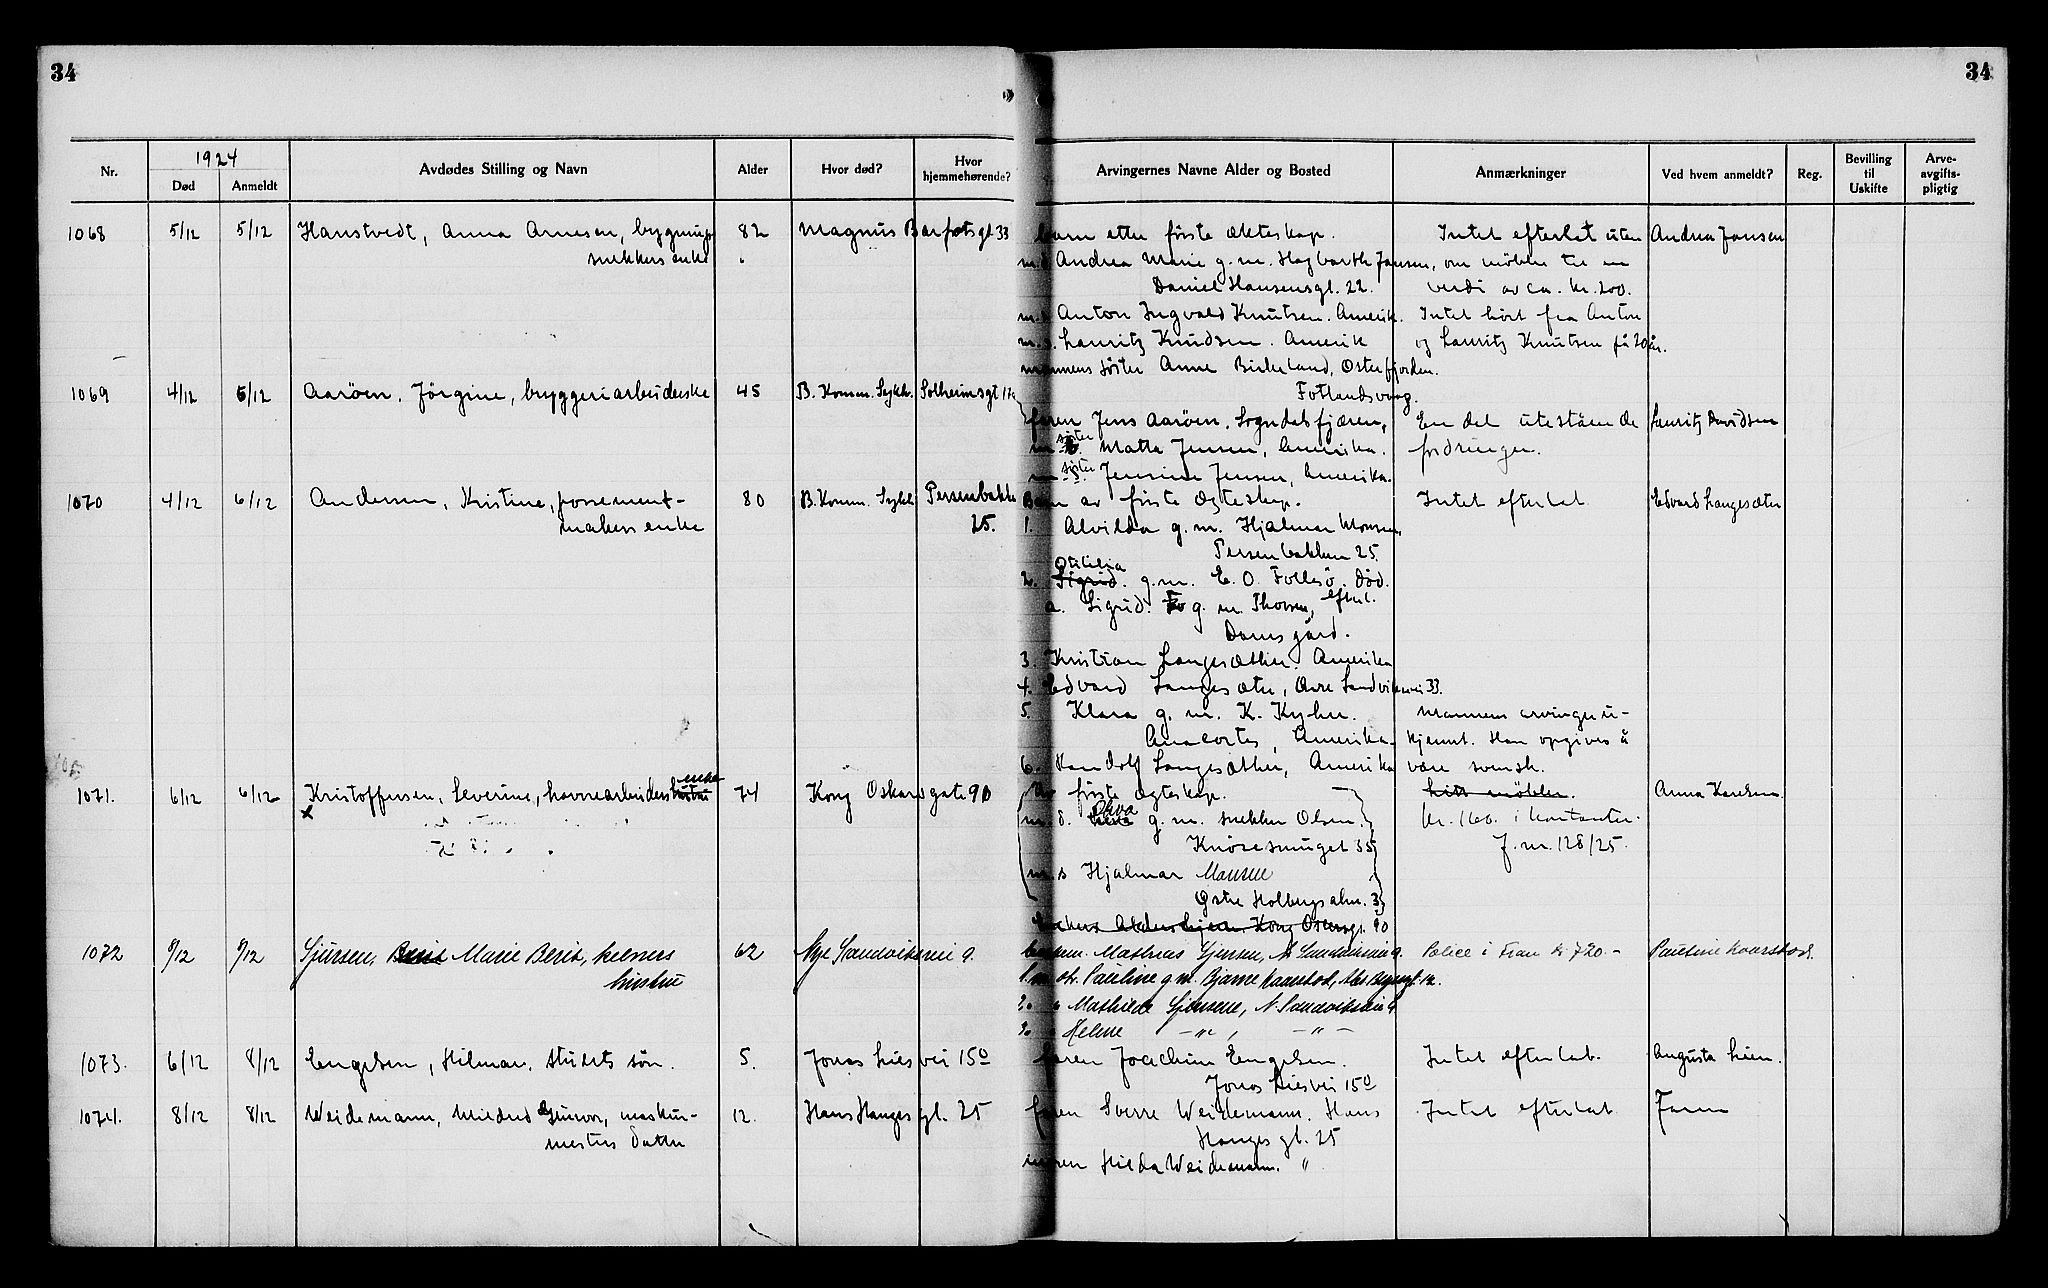 34
34
Nr.
1924
Død
Anmeldt
Avdødes Stilling og Navn
Alder
Hvor død?
Hvor hjemmehørende?
Arvingernes Navne Alder og Bosted
Anmærkninger
Ved hvem anmeldt?
Reg.
Bevilling til Uskifte
Arve-avgifts-pligtig
1068 5/12 5/12 Hanstvedt, Anna Arnesen, bygnings 82 Magnus Barfotsgt 33
snekkers enke
Barn etter første ekteskap. Intet efterlatt uten Andrea Jansen
Andrea Marie g. m. Hagbarth Jansen, om møbler til en
Daniel Hansensgt. 22. verdi av ca. kr. 200.
Anton Ingvald Knutsen. Amerik. Intet hørt fra Anton
Lauritz Knudsen. Amerik og Lauritz Knutsen på 20 år.
mannens søster Anne Birkeland, Osterfjorden.
Fotlandsvaag.
1069 4/12 5/12 Aarøen, Jørgine, bryggeriarbeiderske 45 B. Komm. Sykh. Solheimsgt 17
faren Jens Aarøen, Sogndalsfjæren, En del utestående Lauritz Davidsen
søster Matta Jensen, Amerika. fordringer.
søster Jensine Jensen, Amerika.
1070 4/12 6/12 Andersen, Kristine, possement- 80 B. Komm. Sykh Persenbakke
makers enke 25.
Barn av første egteskap. Intet efterlat Edvard Langesæter
1. Alvilda g. m. Hjalmar Monsen,
Persenbakken 25.
Otililia
2. Sigrid. g. m. E. O. Follesø. død.
a. Sigrid. g. m. Thorsen, efterl.
Damsgård.
3. Kristian Langesæther. Amerika
4. Edvard Langesæter, Øvre Sandviksvei 33.
5. Klara g. m. K. Kyhn. Mannens arvinger u-
Anacortes, Amerika. kjennt. Han opgives å
6. Randolf Langesæther, Amerika være svensk.
1071. 6/12 6/12 Kristoffersen, Severine, havnearbeiders hustru enke 74 Kong Oskars gate 90
x
Av første egteskap. litt møbler. Anna Karlsen
m. d. g. m. snekker Olsen. kr. 160. i kontanter.
Knøsesmuget 35 J. nr. 128/25.
m. s Hjalmar Monsen
Østre Holbergsalm. 3
Kong Oskarsgt. 90
1072 8/12 9/12 Sjursen, Berit Marie Berit, kelners 62 Nye Sandviksvei 9.
hustru
Mathias Sjursen, N. Sandviksvei 9. Police i Fram kr 720.- Pauline Kaarstad.
1. Pauline g. m. Bjarne Kaarstad, 12.
2. Mathilde Sjursen, N. Sandviksvei 9
3. Helene - " , - " -
1073. 6/12 8/12 Engelsen, Hilmar. stuerts søn. 5. Jonas Lies vei 15d
faren Joachim Engelsen. Intet efterlat. Augusta Lien.
Jonas Liesvei 15d
1074. 8/12 8/12 Weidemann, Mildred Gunvor, maskin- 12. Hans Hauges gt. 25
mesters datter
faren Sverre Weidemann. Hans Intet efterlat Faren
Hauges gt. 25
moren Hilda Weidemann. "